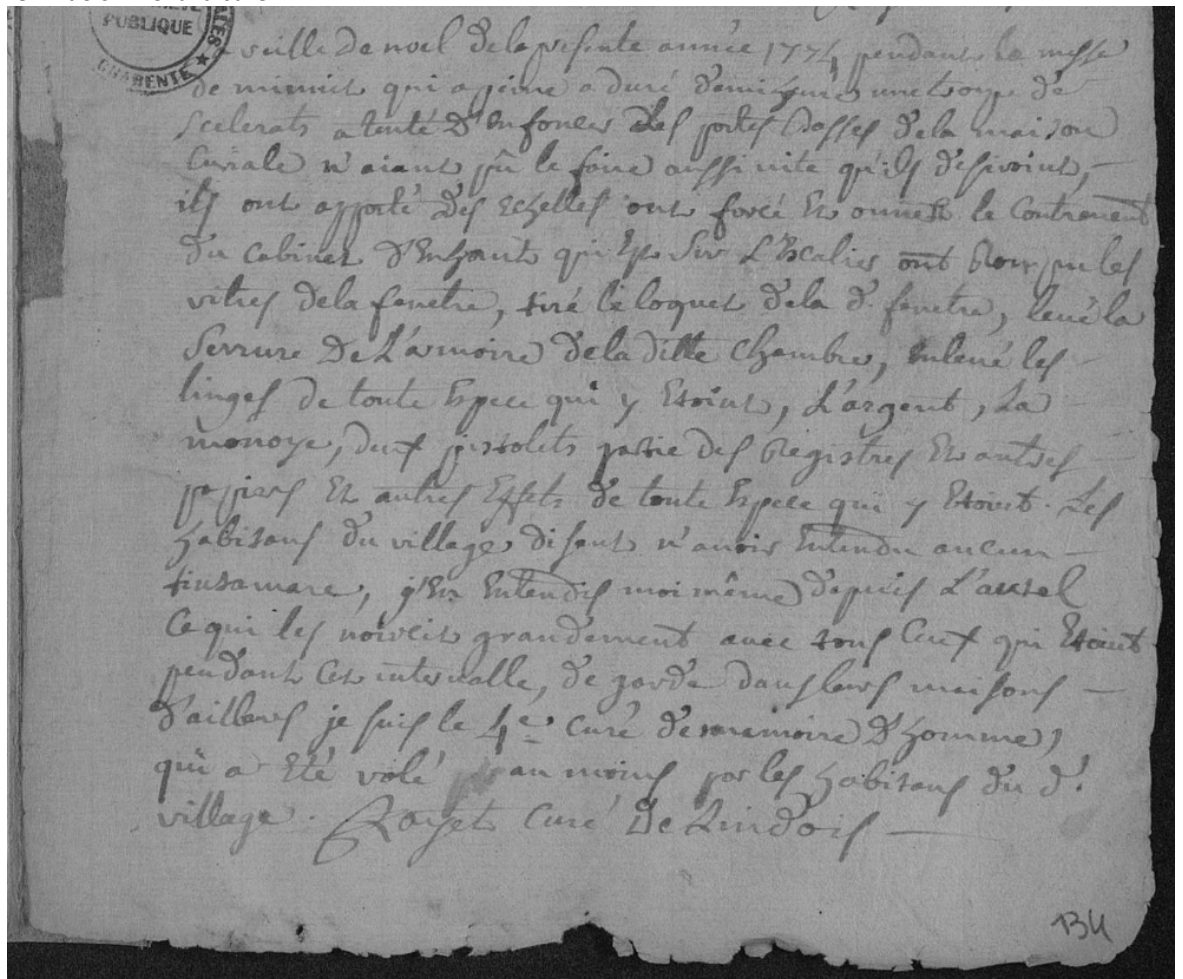 PUBLIQUE
CHARENTE
veille de noel de la presente année 1774 pendant la messe
de minuit qui a peine a duré demi heure une troupe de
scelerats a tenté d'enfoncer les portes basses de la maison
curiale n'aiant pû le faire aussi vite qu'ils desiroint,
ils ont apporté des echelles ont forcé et ouvert le contrevent
du cabinet d'enhaut qui est sur l'escalier ont les
vitres de la fenetre, tiré le loquet de la d. fenetre, levé la
serrure de l'armoire de la ditte chambre, enlevé les
linges de toute espece qui y etoint, l'argent, la
monoye, deux pistolets partie des registres et autres
papiers et autres effets de toute espece qui y etoint. Les
habitans du village disent n'avoir entendu aucun
tintamare, j'en entendis moi même depuis l'autel
ce qui les noircit grandement avec tous ceux qui etoint
pendant cet intervalle, de garde dans leurs maisons
d'ailleurs je suis le 4e curé de memoire d'homme
qui a eté volé au moins par les habitans du d.
village. curé de Lindois
134